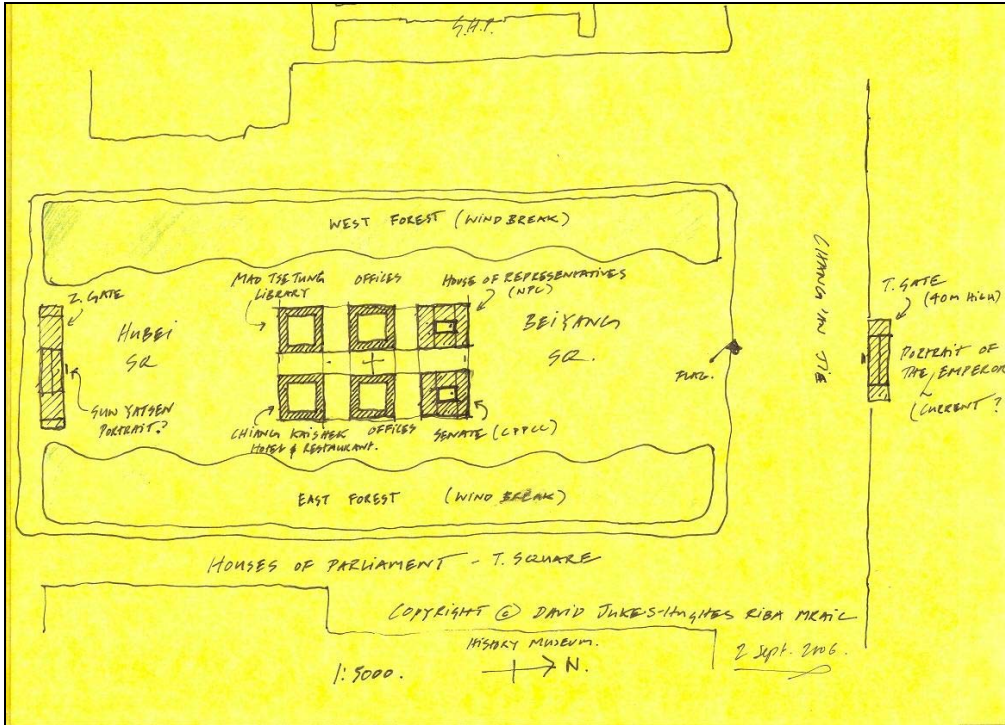 G.H.P.
WEST FOREST (WIND BREAK)
MAO TSE TUNG
LIBRARY
OFFICES
HOUSE OF REPRESENTATIVES
(NPC)
Z. GATE
HUBEI
SQ
BEIYANG
SQ.
SUN YATSEN
PORTRAIT?
CHIANG KAISHEK
HOTEL & RESTAURANT.
OFFICES
SENATE (CPPCC)
FLAG.
CHANG'AN JIE
T. GATE
(40M HIGH)
PORTRAIT OF
THE EMPEROR
(CURRENT?
EAST FOREST (WIND BREAK)
HOUSES OF PARLIAMENT - T. SQUARE
COPYRIGHT © DAVID JUKES-HUGHES RIBA MRAIC
HISTORY MUSEUM.
2 Sept. 2006.
1:5000.
N.